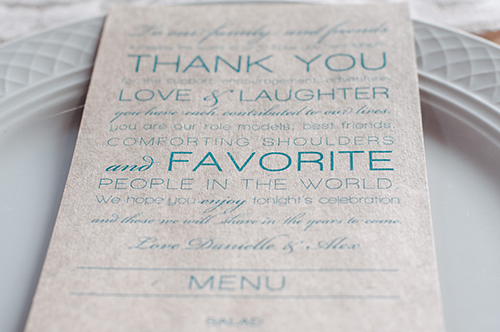 To our family and friends
THANK YOU
for the support, encouragement, adventure,
LOVE & LAUGHTER
you have each contributed to our lives.
you are our role models, best friends,
COMFORTING SHOULDERS
and FAVORITE
PEOPLE IN THE WORLD
We hope you enjoy tonight's celebration
and those we will share in the years to come
Love Danielle & Alex
MENU
SALAD